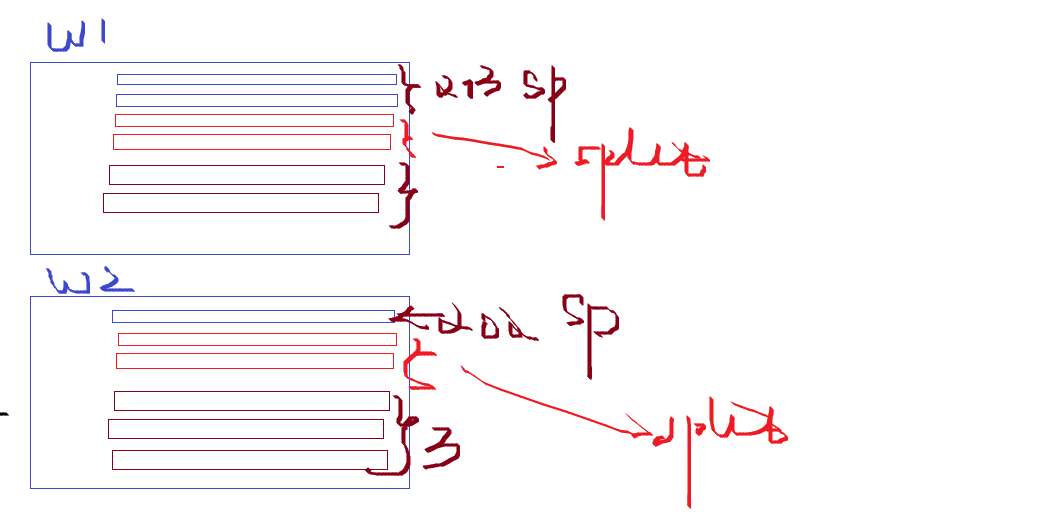 W1
213 sp
split
W2
202 sp
split
3